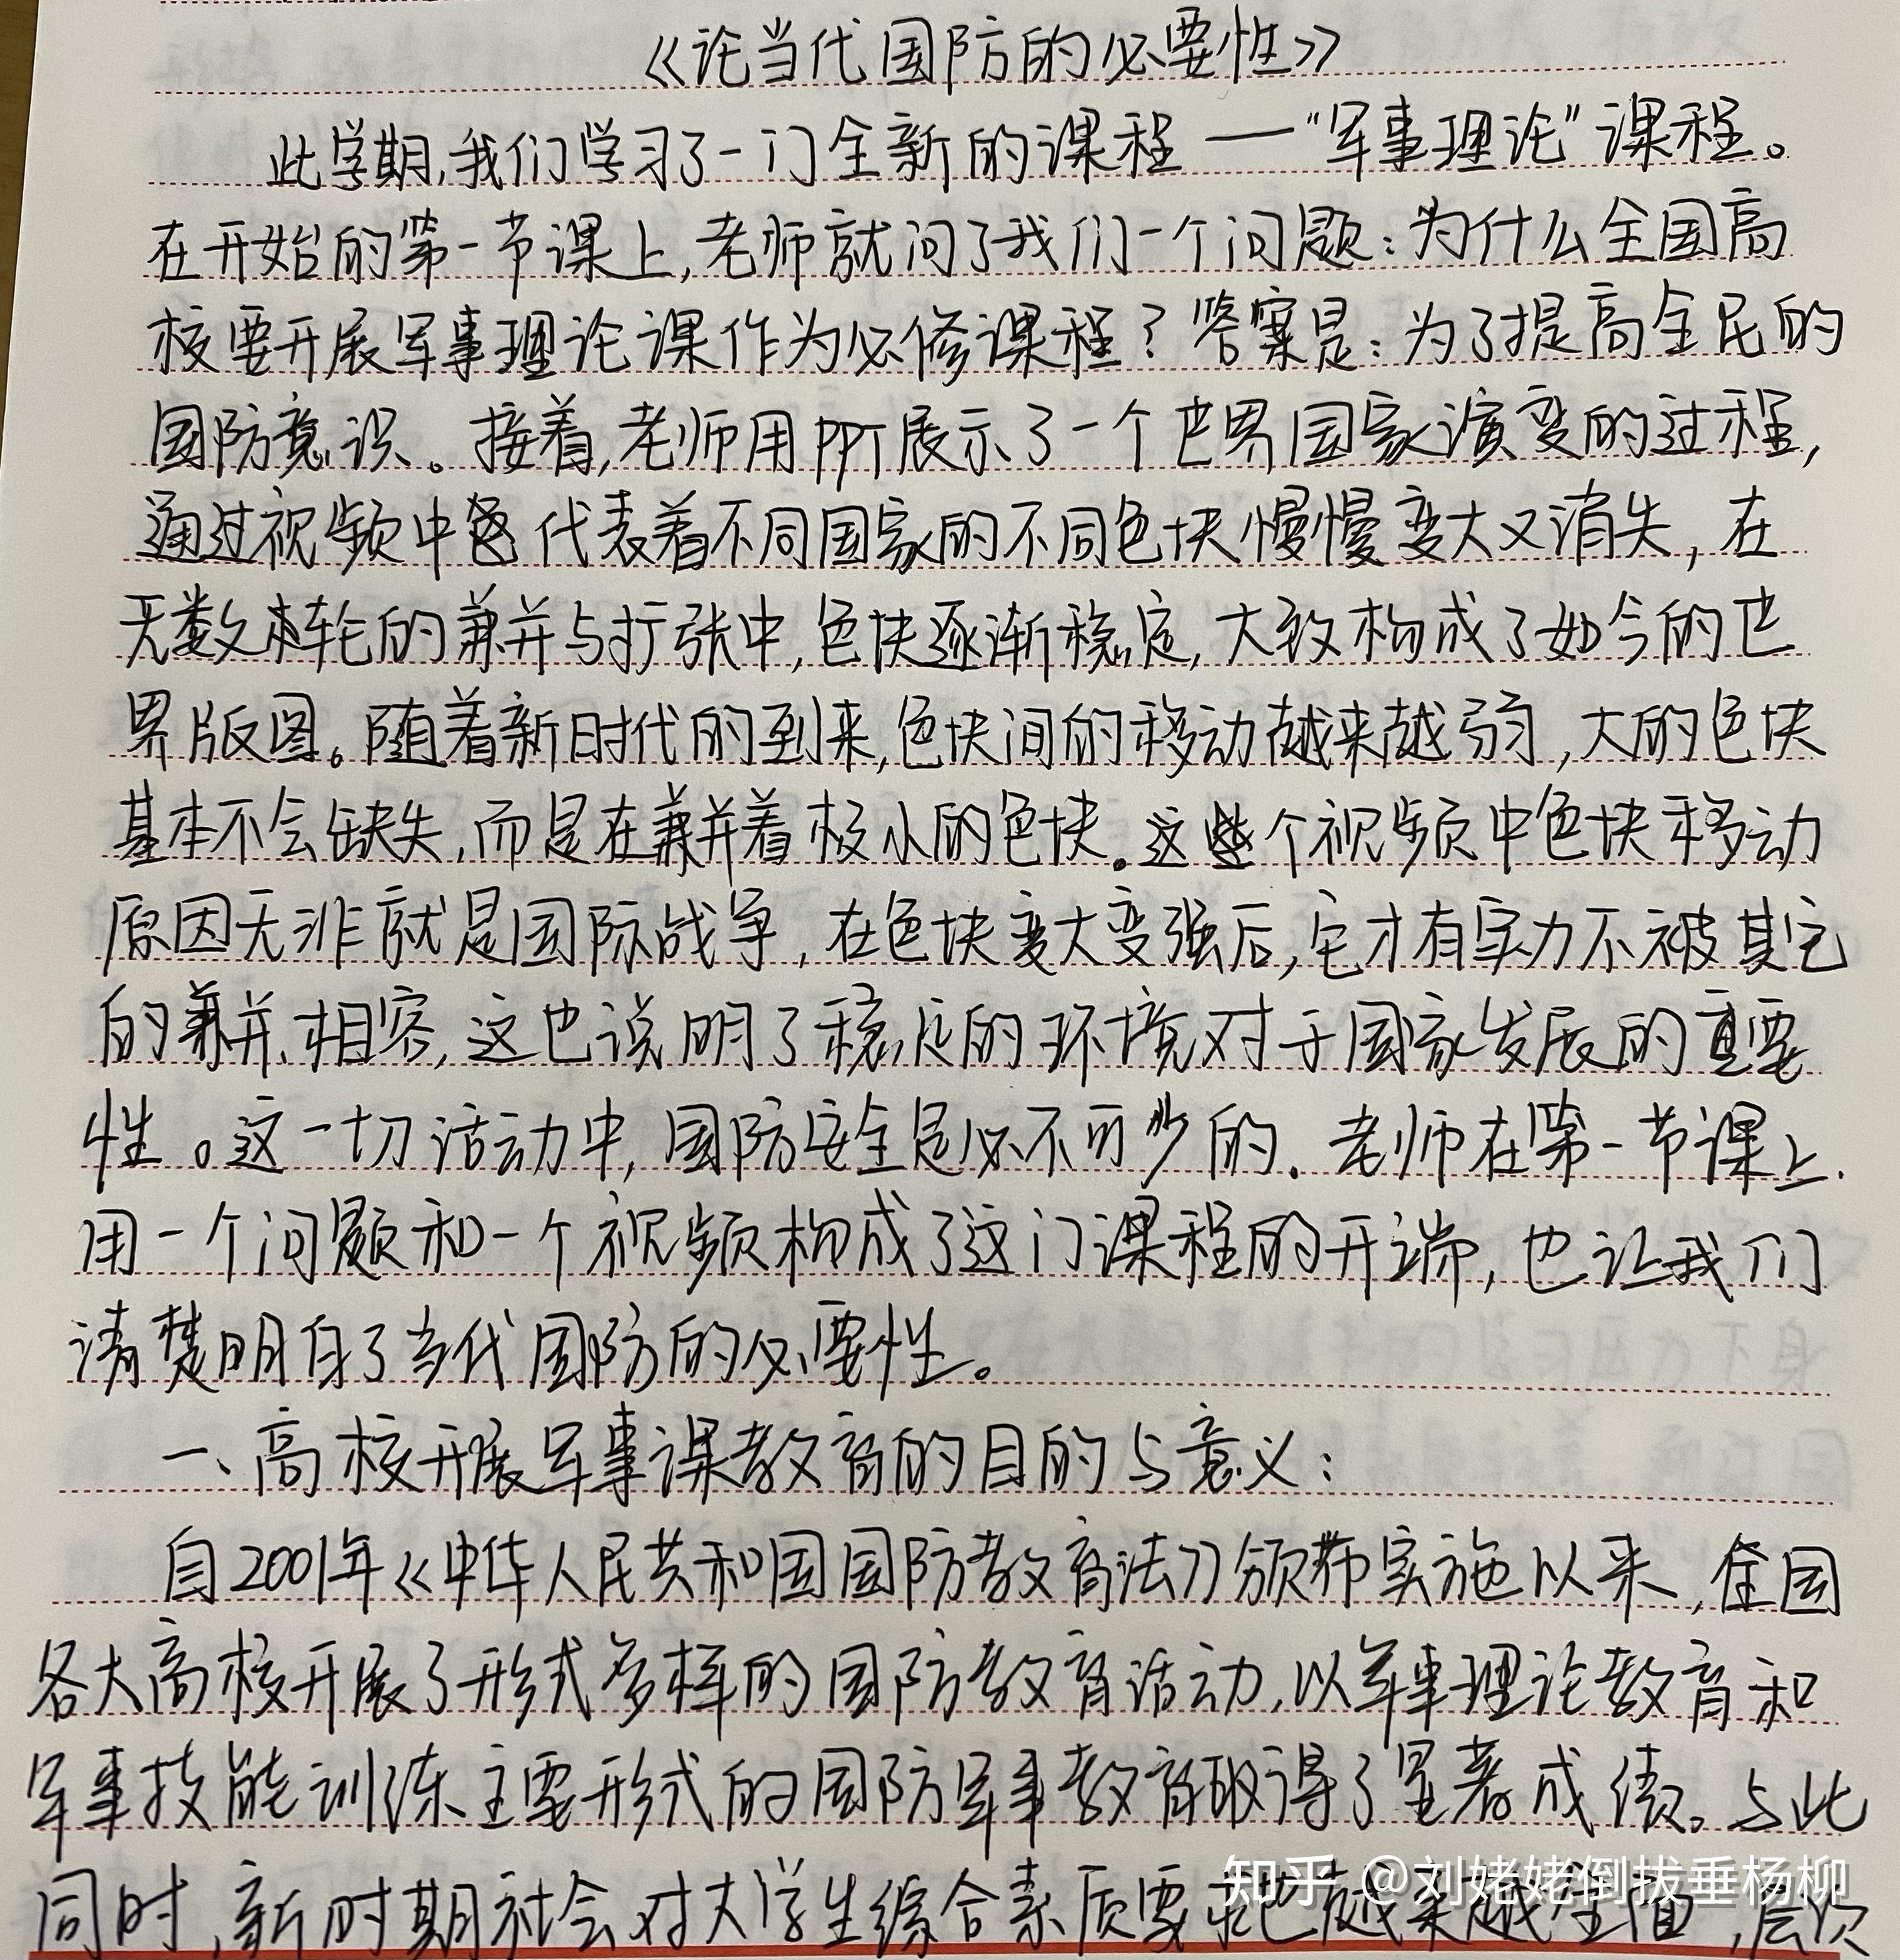 《论当代国防的必要性》
此学期,我们学习了一门全新的课程——“军事理论”课程。
在开始的第一节课上,老师就问了我们一个问题:为什么全国高
校要开展军事理论课作为必修课程?答案是:为了提高全民的
国防意识。接着,老师用PPT展示了一个世界国家演变的过程,
通过视频中 代表着不同国家的不同色块慢慢变大又消失,在
无数 轮的兼并与扩张中,色块逐渐稳定,大致构成了如今的世
界版图。随着新时代的到来,色块间的移动越来越弱,大的色块
基本不会缺失,而是在兼并着极小的色块。这些个视频中色块移动
原因无非就是国际战争,在色块变大变强后,它才有实力不被其它
的兼并、相容,这也说明了稳定的环境对于国家发展的重要
性。这一切活动中,国防安全是必不可少的.老师在第一节课上.
用一个问题和一个视频构成了这门课程的开端,也让我们
清楚明白了当代国防的必要性。
一、高校开展军事课教育的目的与意义:
自2001年《中华人民共和国国防教育法》颁布实施以来,全国
各大高校开展了形式多样的国防教育活动,以军事理论教育和
军事技能训练主要形式的国防军事教育取得了显著成绩。与此
同时,新时期社会对大学生综合素质要求也越来越全面,层次
知乎 @刘姥姥倒拔垂杨柳